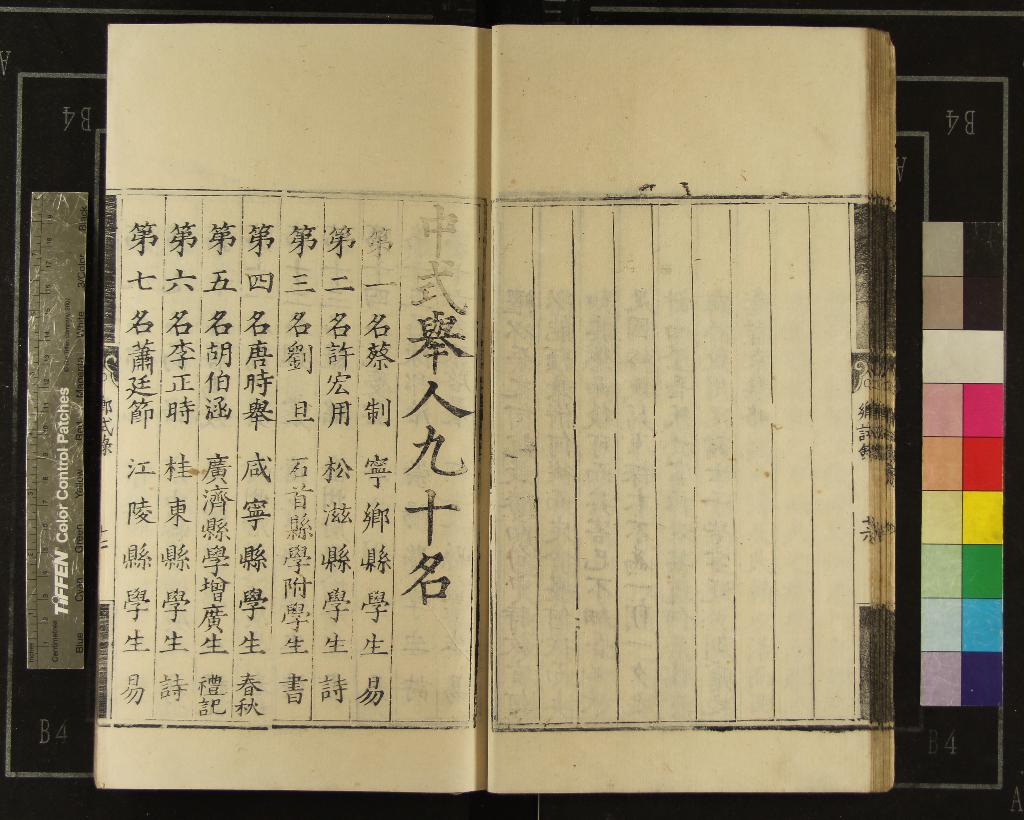 中式舉人九十名
第一名蔡制 寧鄉縣學生 易
第二名許宏用 松滋縣學生 詩
第三名劉旦 石首縣學附學生 書
第四名唐時舉 咸寧縣學生 春秋
第五名胡伯涵 廣濟縣學增廣生 禮記
第六名李正時 桂東縣學生 詩
第七名蕭廷節 江陵縣學生 易
TIFFEN Color Control Patches
Blue
Cyan
Green
Yellow
Red
Magenta
White
3/Color
Black
Inches
Centimetres
B4
B4
B4
B4
A
A
A